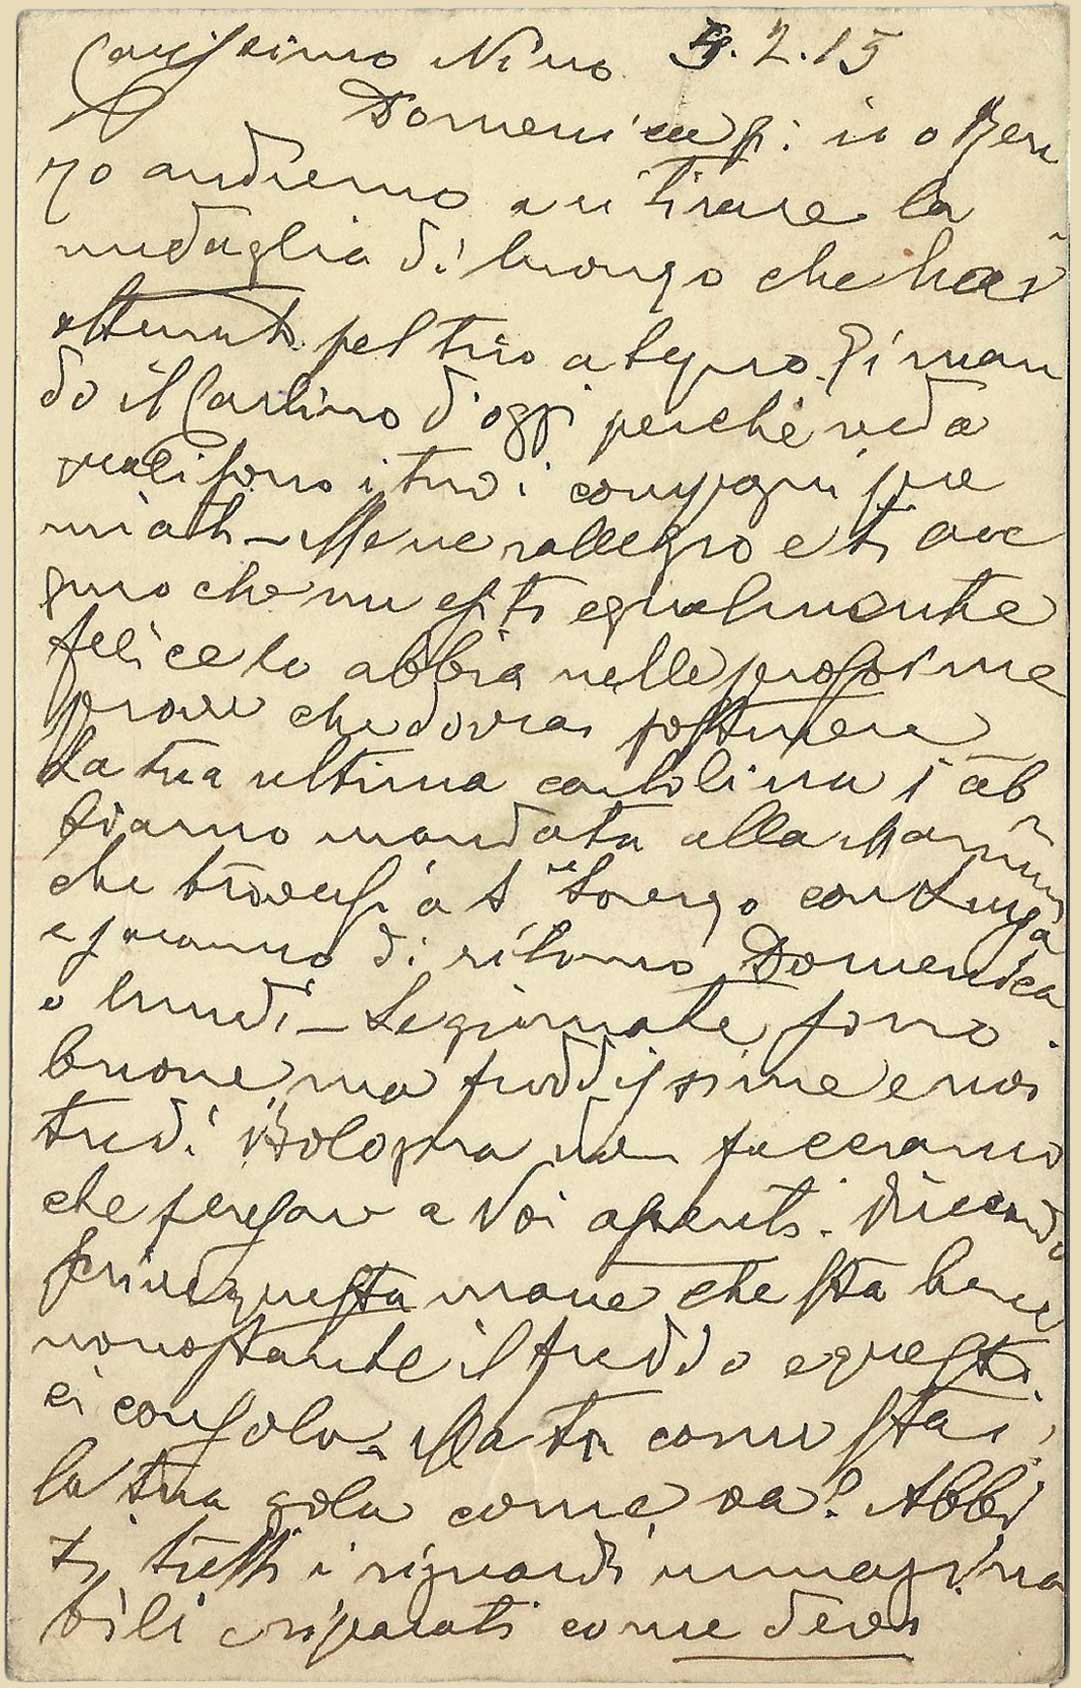 Carissimo Nino 5.2.15
Domenica p: io o Ren
zo andremo a ritirare la
medaglia di bronzo che hai
ottenuto pel tiro a segno. Ti man
do il Carlino d'oggi perché veda
quali sono i tuoi compagni pre
miati - Me ne rallegro e ti au
guro che un esito egualmente
felice lo abbia nelle prossime
prove che dovrai sostenere
La tua ultima cartolina l'ab
biamo mandata alla Mamma
che trovasi a S. Lorenzo con
e saranno di ritorno Domenica
o lunedì - Le giornate sono
buone ma freddissime e noi
tredi Bologna non facciamo
che pensare a Voi assenti.
scrive questa mane che sta bene
nonostante il freddo e questo
ci consola - Ma tu come stai,
la tua gola come va? Abbi
ti tutti i riguardi immagina
bili e riparati come devi